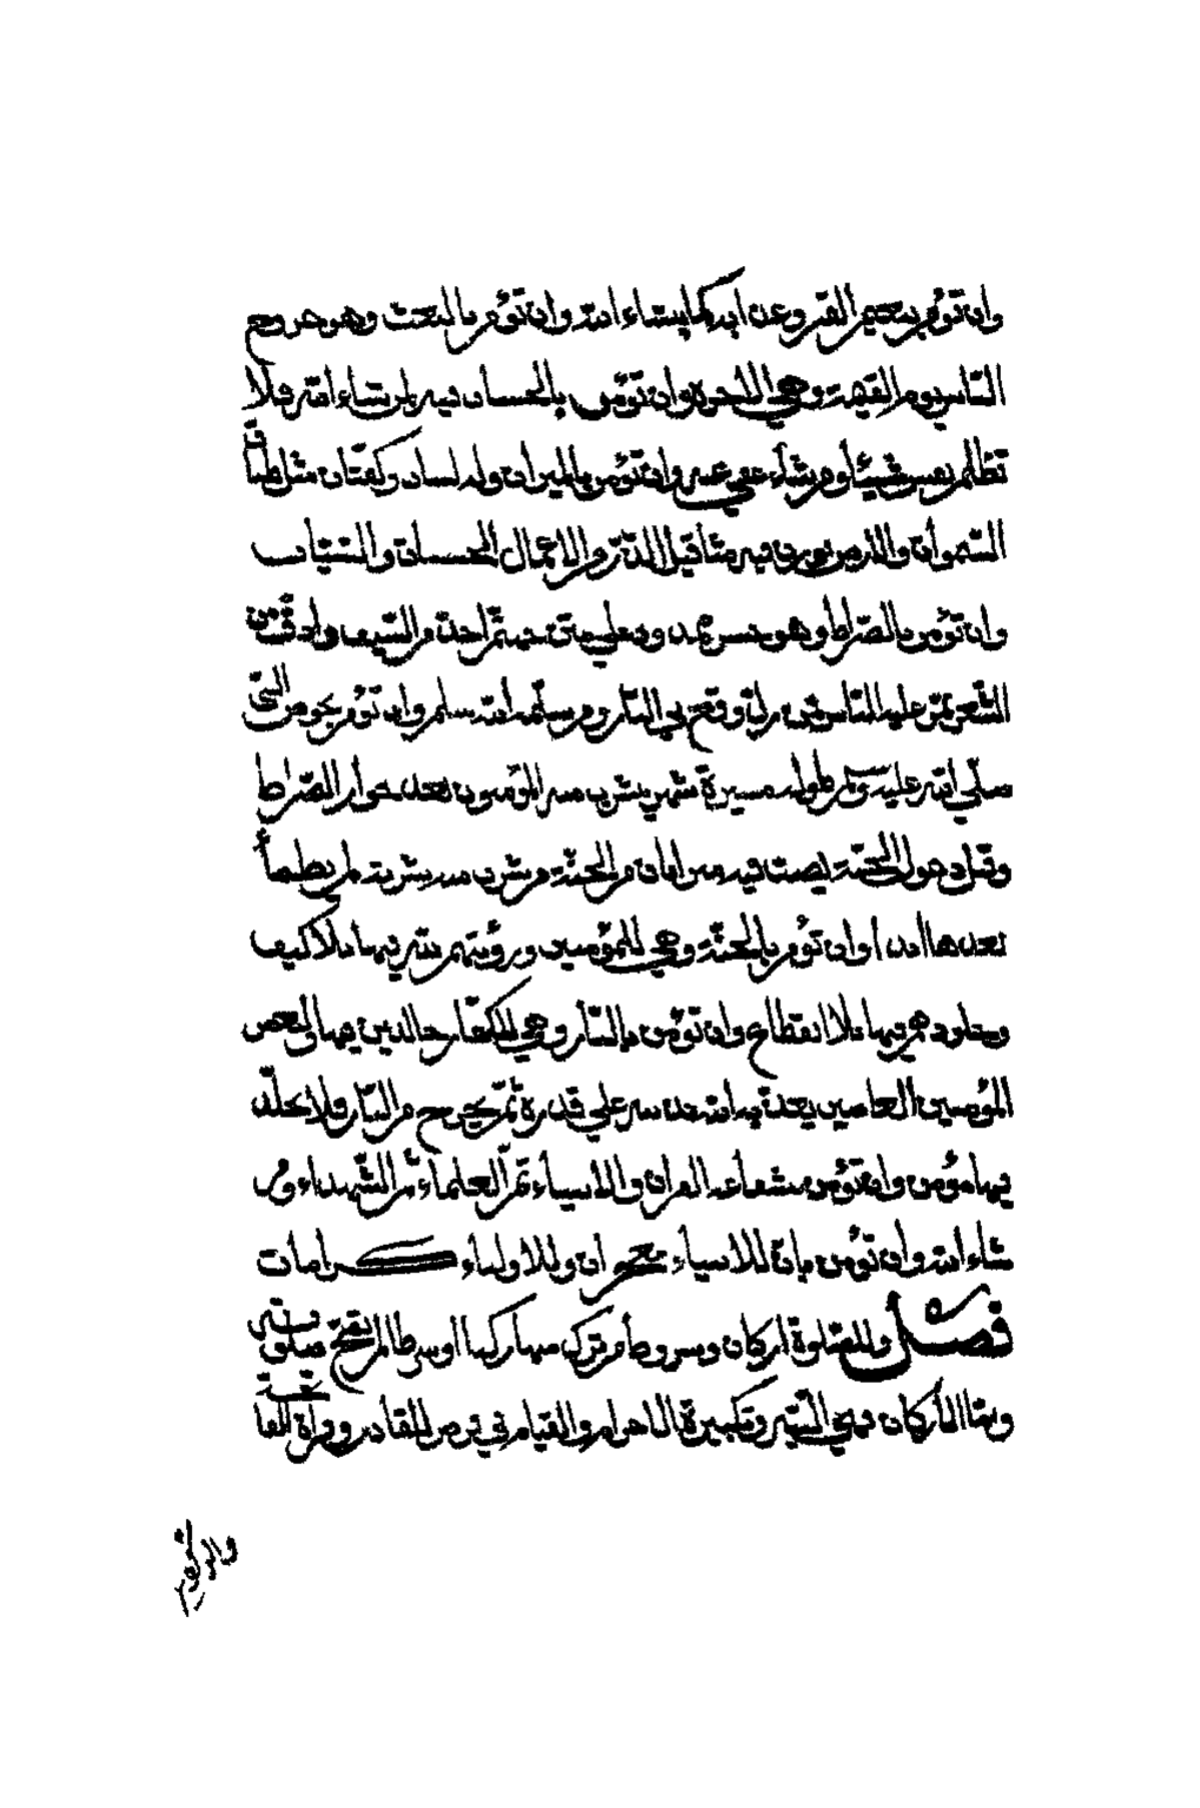 وان تؤمن بنعيم القبر وعذابه كما يشاء الله وان تؤمن بالبعث وهو خروج
الناس يوم القيمة وهي الاخرة وان تؤمن بالحساب فيه لمن شاء الله فلا
تظلم نفس شيئا ومن شاء عفي عنه وان تؤمن بالميزان وله لسان وكفتان مثل طباق
السموات والارض يوزن فيه مثاقيل الذر من الاعمال الحسنات والسيئات
وان تؤمن بالصراط وهو جسر ممدود علي متن جهنم احد من السيف وادق من
الشعر يمر عليه الناس فمن زلق وقع في النار ومن سلمه الله سلم وان تؤمن بحوض النبي
صلي الله عليه وسلم طوله مسيرة شهر يشرب منه المؤمنون بعد جواز الصراط
وقبل دخول الجنة يصب فيه ميزابان من الجنة من شرب منه شربة لم يظمأ
بعدها ابدا وان تؤمن بالجنة وهي للمؤمنين ورؤيتهم لله فيها بلا كيف
وخلودهم فيها بلا انقطاع وان تؤمن بالنار وهي للكفار خالدين فيها ولبعض
المؤمنين العاصين يعذبه الله علي قدره ثم يخرج من النار ولا يخلد
فيها مؤمن وان تؤمن بشفاعة القران والانبياء ثم العلماء ثم الشهداء ومن
شاء الله وان تؤمن بان للانبياء معجزات وللاولياء كرامات
فصل وللصلوة اركان وشروط من ترك منها ركنا او شرطا لم تصح صلوته
وما الاركان فهي النية وتكبيرة الاحرام والقيام في فرض للقادر وقراة الفاتحة
والركوع